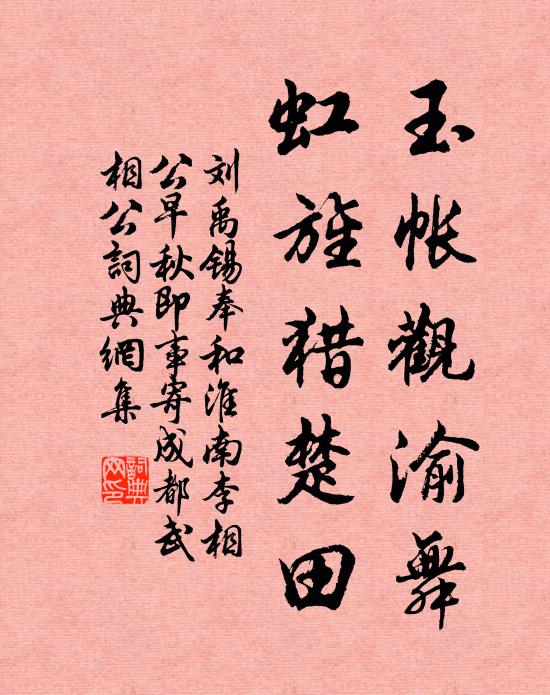 玉帐觀渝舞
虹旌猎楚田
刘禹锡奉和淮南李相
公早秋即事寄成都武
相公詞典網集
詞典
网印